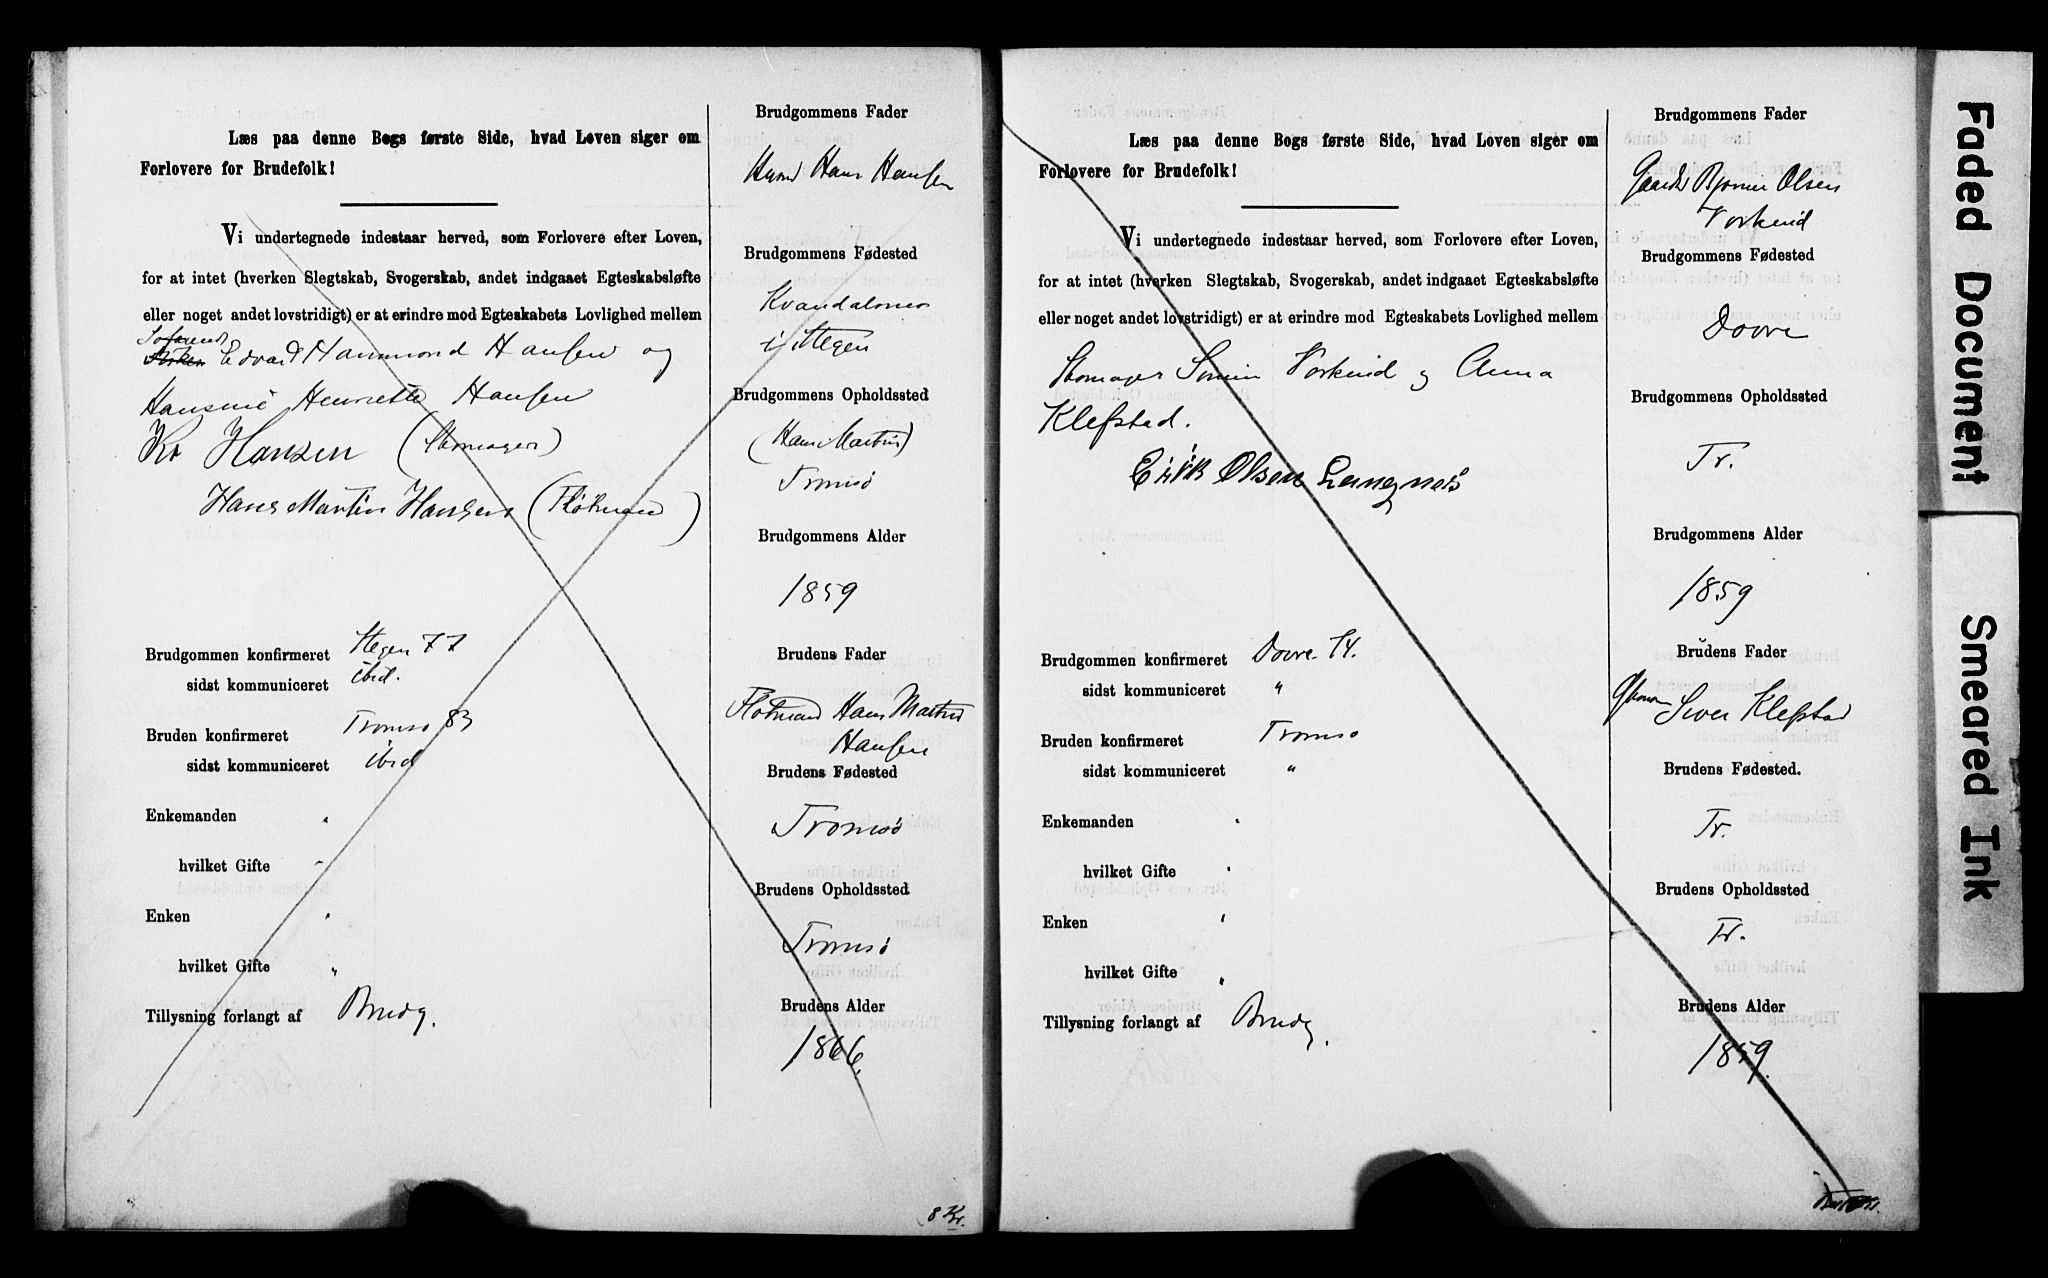 Læs paa denne Bogs første Side, hvad Loven siger om
Forlovere for Brudefolk!
Vi undertegnede indestaar herved, som Forlovere efter Loven,
for at intet (hverken Slegtskab, Svogerskab, andet indgaaet Egteskabsløfte
eller noget andet lovstridigt) er at erindre mod Egteskabets Lovlighed mellem
Edvard Hammond Hansen og
Hansine Henriette Hansen
Hansen (Skomager)
Hans Martin Hansen (Fløtmand)
Brudgommen konfirmeret Stegen 77
sidst kommuniceret ibid.
Bruden konfirmeret Tromsø 83
sidst kommuniceret ibid
Enkemanden "
hvilket Gifte "
Enken "
hvilket Gifte "
Tillysning forlangt af Brudg.
Brudgommens Fader
Hans Hansen
Brudgommens Fødested
i Stegen
Brudgommens Opholdssted
(Hans Martin)
Tromsø
Brudgommens Alder
1859
Brudens Fader
Fløtmand Hans Martin
Hansen
Brudens Fødested
Tromsø
Brudens Opholdssted
Tromsø
Brudens Alder
1866.
8 Kr.
Læs paa denne Bogs første Side, hvad Loven siger om
Forlovere for Brudefolk!
Vi undertegnede indestaar herved, som Forlovere efter Loven,
for at intet (hverken Slegtskab, Svogerskab, andet indgaaet Egteskabsløfte
eller noget andet lovstridigt) er at erindre mod Egteskabets Lovlighed mellem
Skomager Simen Vorkinid og Anna
Klefstad.
Erik Olsen Langnes
Brudgommen konfirmeret Dovre 74.
sidst kommuniceret "
Bruden konfirmeret Tromsø
sidst kommuniceret "
Enkemanden "
hvilket Gifte "
Enken "
hvilket Gifte "
Tillysning forlangt af Brudg.
Brudgommens Fader
Olsen
Vorkinid
Brudgommens Fødested
Dovre
Brudgommens Opholdssted
Tr.
Brudgommens Alder
1859
Brudens Fader
Siver Klefstad
Brudens Fødested.
Tr.
Brudens Opholdssted
Tr.
Brudens Alder
1859.
Faded Document
Smeared Ink